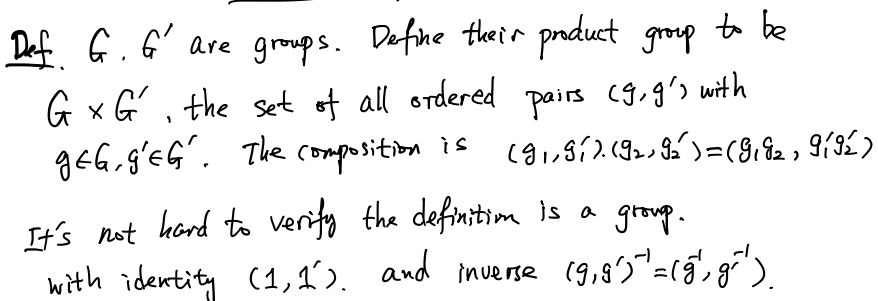 Def. G, G' are groups. Define their product group to be
G × G', the set of all ordered pairs (g, g') with
g∈G, g'∈G'. The composition is (g₁, g₁')·(g₂, g₂') = (g₁g₂, g₁'g₂')
It's not hard to verify the definition is a group.
with identity (1, 1'). and inverse (g, g')⁻¹ = (g⁻¹, g'⁻¹).